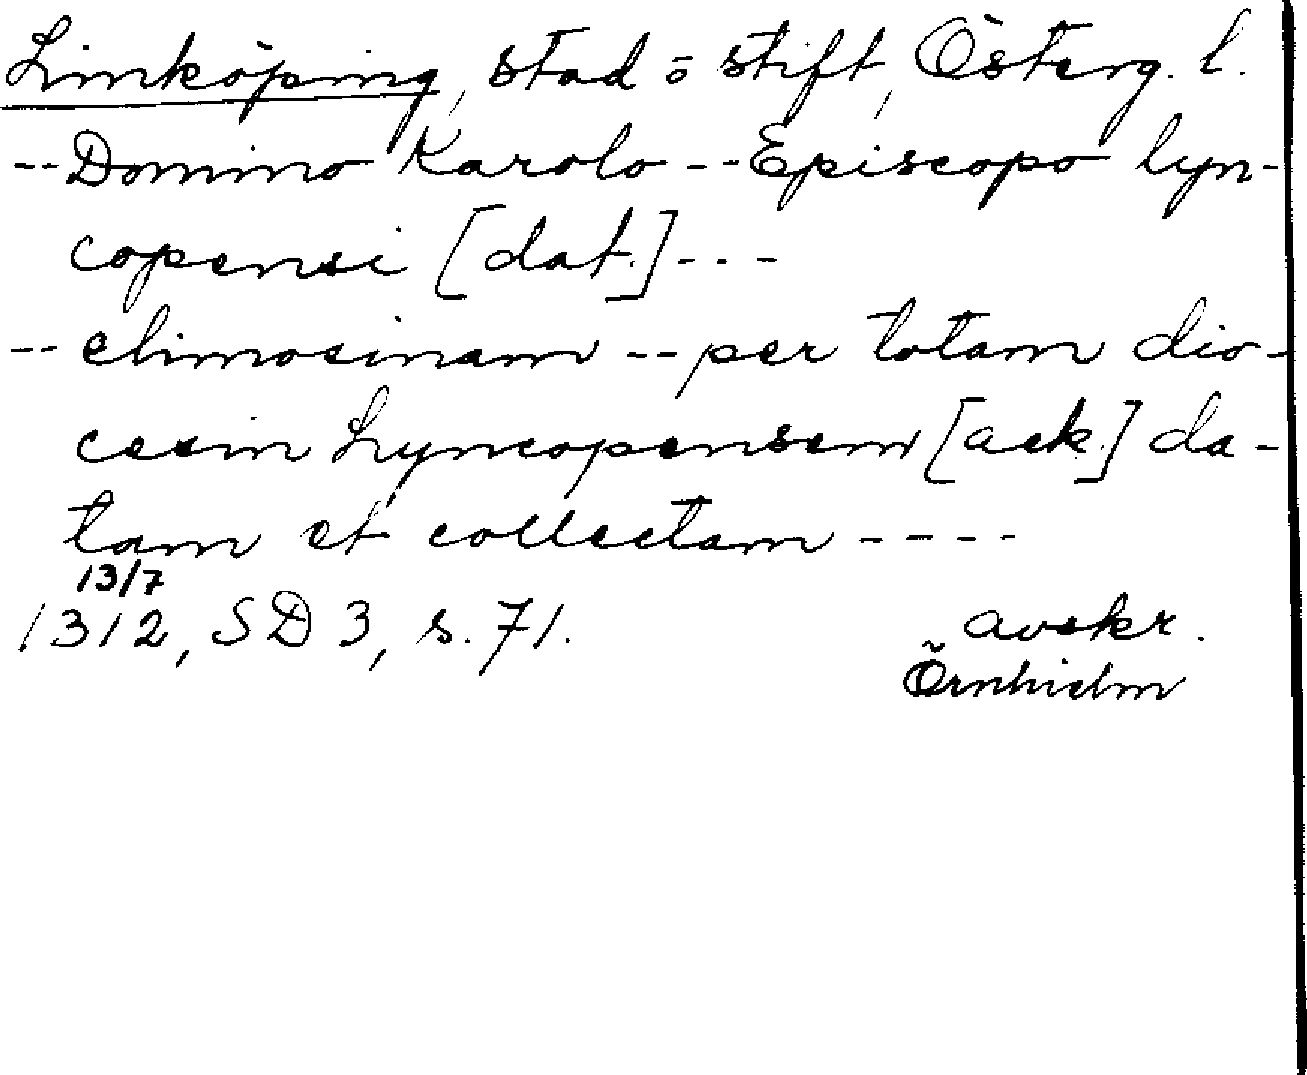 Linköping, stad o stift, Österg. l.
-- Domino Karolo -- Episcopo lyn-
copensi [dat.] ---
-- elimosinam -- per totam dio-
cesin Lyncopensem [ack.] da-
tam et collectam ----
13/7
1312, SD 3, s. 71. avskr.
Örnhielm